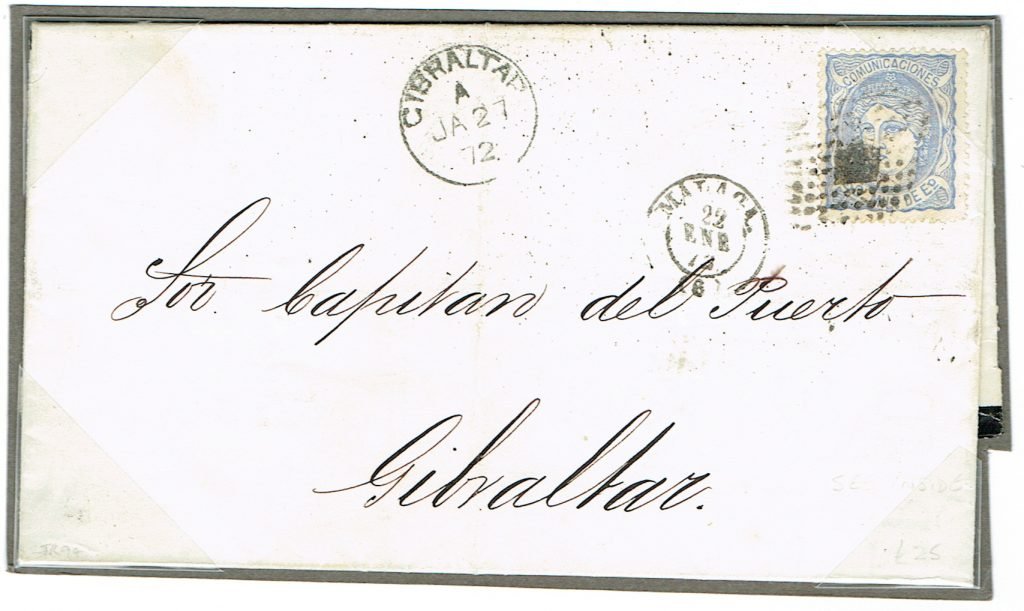 GIBRALTAR
A
JA 27
72
COMUNICACIONES
DE Eº
MALAGA.
22
ENE
Sor. Capitan del Puerto
Gibraltar.
SEE INSIDE
£25